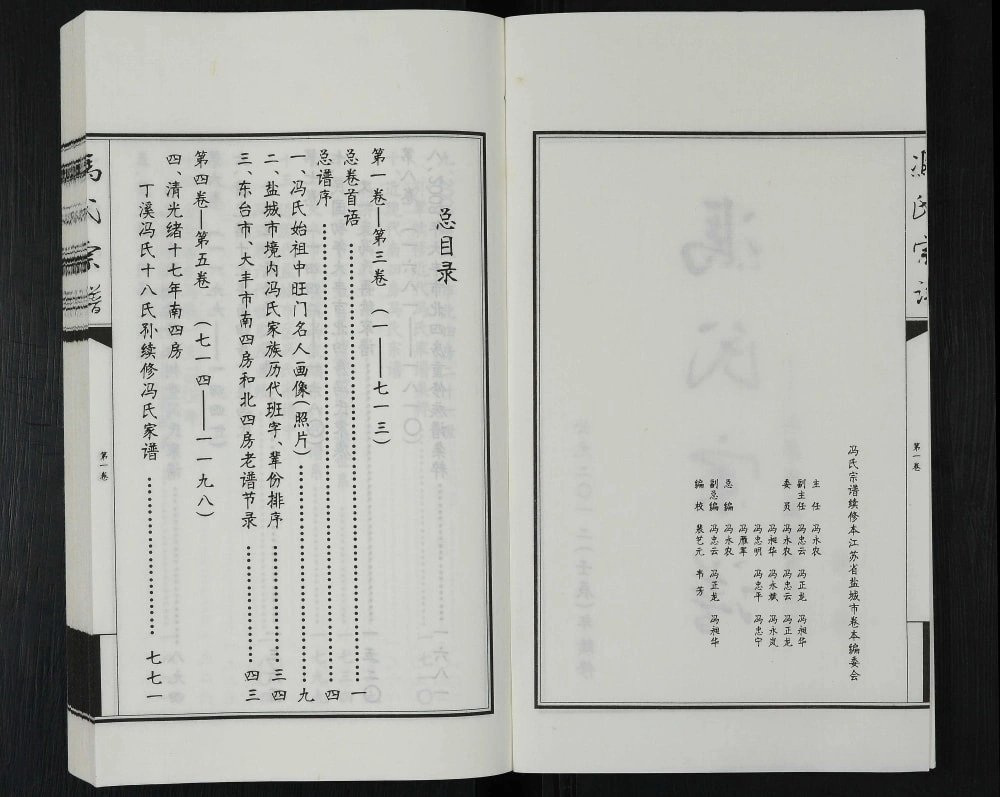 冯氏宗谱续修本江苏省盐城市卷本编委会
主任 冯永农
副主任 冯忠云 冯正龙 冯昶华
委员 冯永农 冯忠云 冯正龙
冯昶华 冯永斌 冯永岚
冯忠明 冯忠平 冯忠宁
冯雁军
总编 冯永农
副总编 冯忠云 冯正龙 冯昶华
编校 裴艺元 韦芳
第一卷
总目录
第一卷—第三卷(一——七一三)
总卷首语 一
总谱序 四
一、冯氏始祖中旺门名人画像(照片) 九
二、盐城市境内冯氏家族历代班字、辈份排序 三四
三、东台市、大丰市南四房和北四房老谱节录 四三
第四卷—第五卷(七一四——一一九八)
四、清光绪十七年南四房
丁溪冯氏十八氏孙续修冯氏家谱 七七一
冯氏宗谱
第一卷